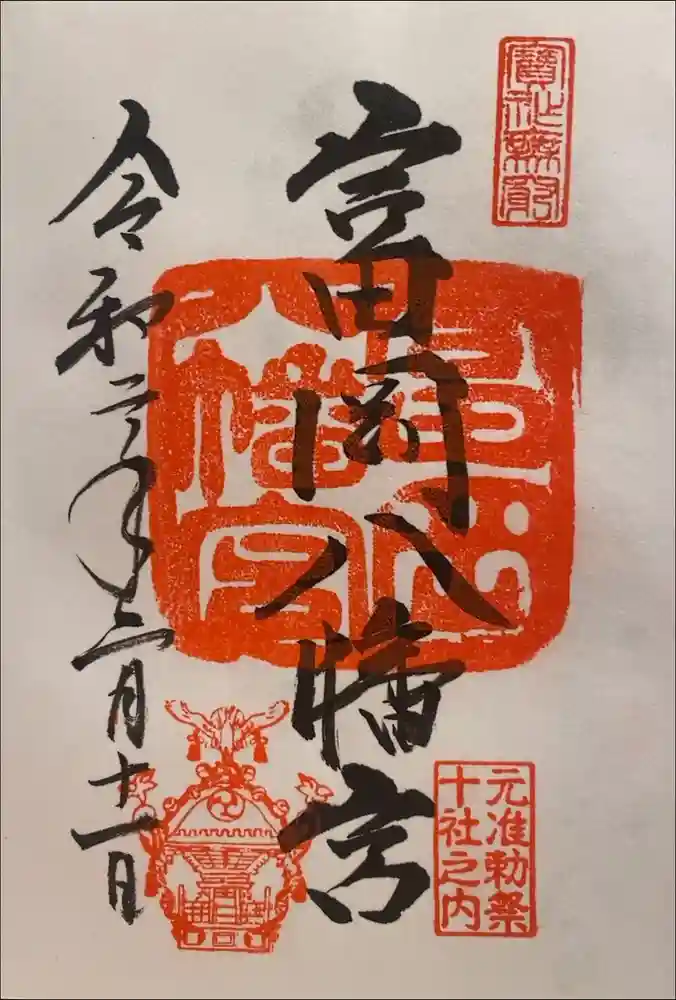 寶祚無窮
富岡八幡宮
富岡八幡宮
元准勅祭
十社之内
令和二年三月十一日